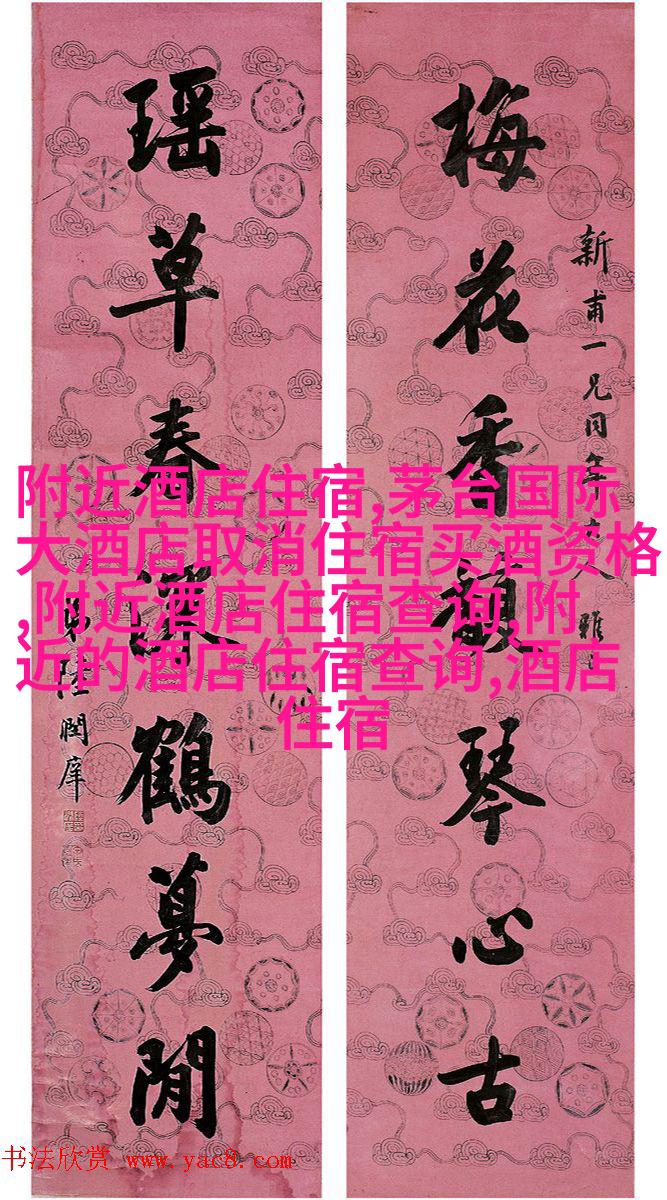 梅花香韻琴心古
新甫一兄同年大人雅
瑶草春深鶴夢閒
弟陸潤庠
附近酒店住宿,茅台国际
大酒店取消住宿买酒资格
,附近酒店住宿查询,附
近的酒店住宿查询,酒店
住宿
书法欣赏 www.yac8.com